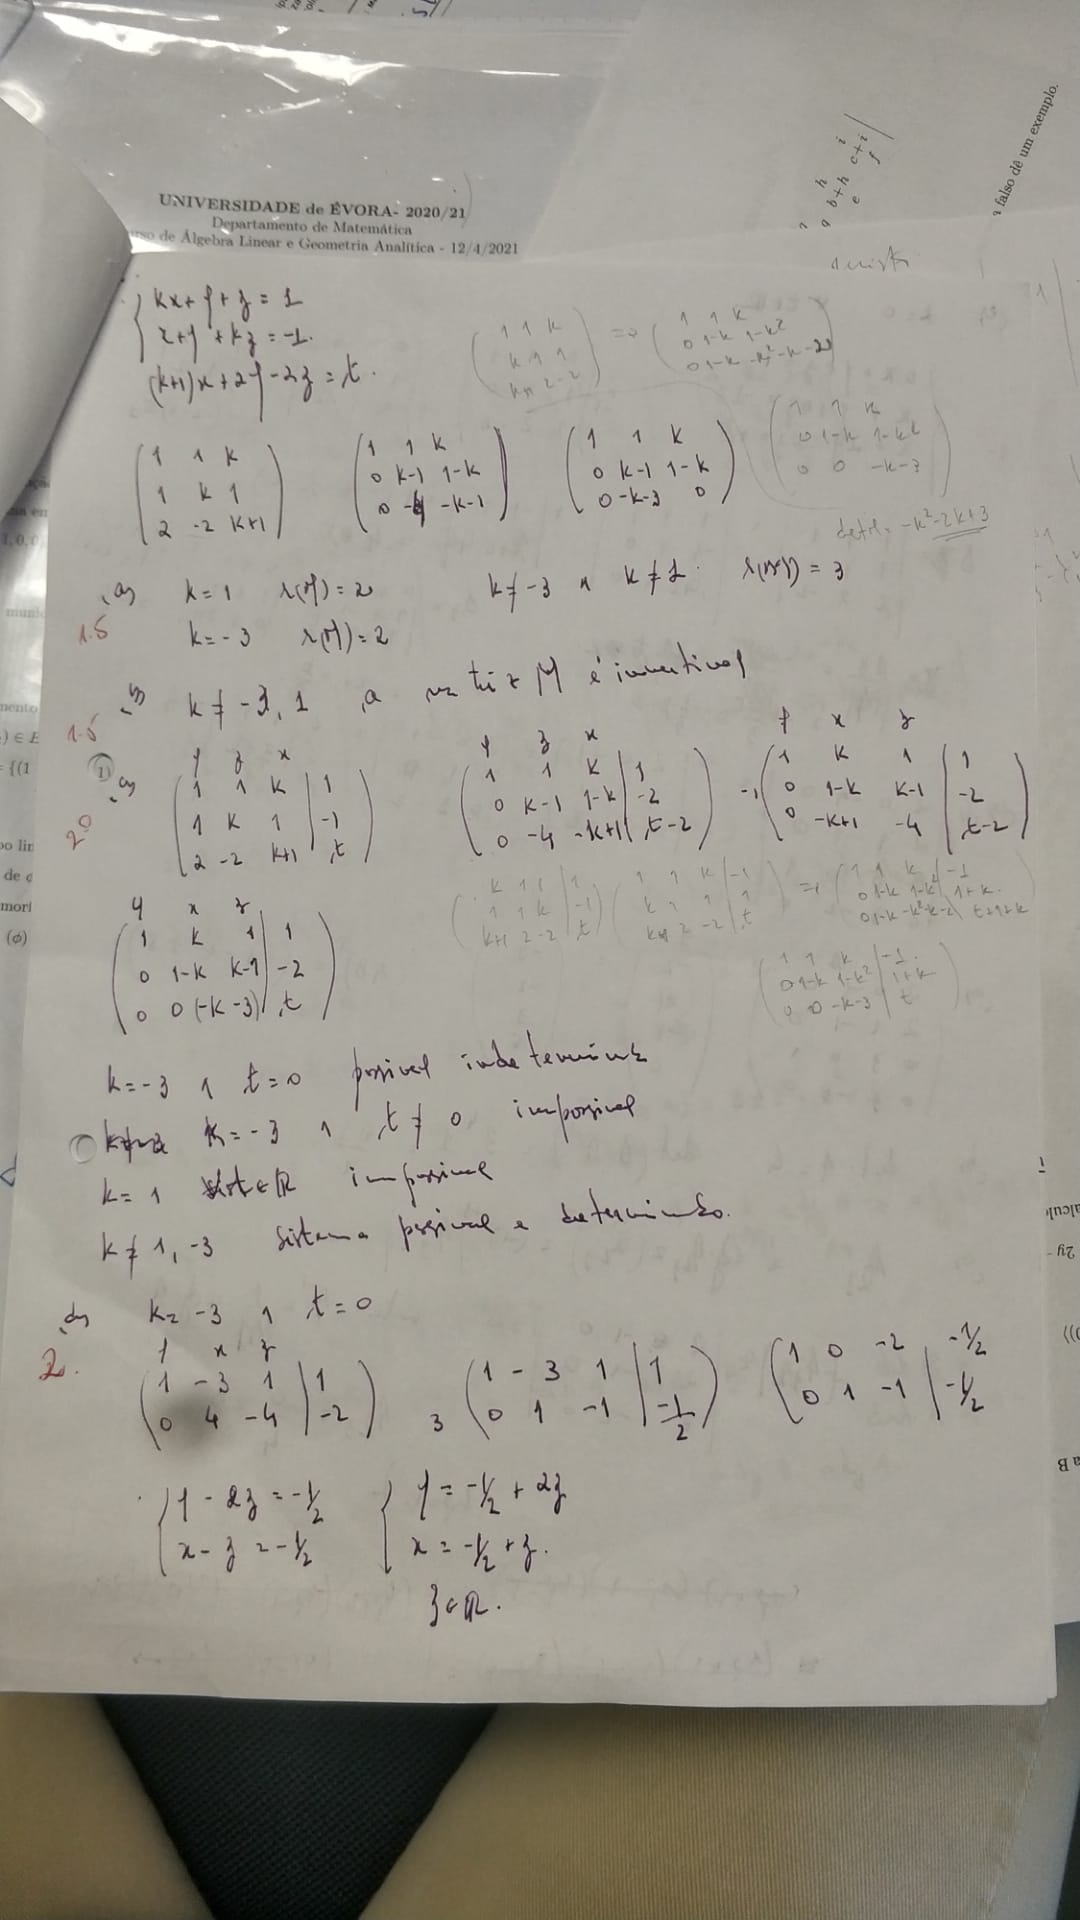 UNIVERSIDADE de ÉVORA- 2020/21
Departamento de Matemática
de Álgebra Linear e Geometria Analítica - 12/4/2021
a falso dê um exemplo.
kx + y + z = 1
x + y + kz = -1.
(k+1)x + 2y - 2z = t.
1 1 k
k 1 1
k+1 2 -2
=>
1 1 k
0 1-k 1-k²
0 1-k -k²-k-2
1 1 k
1 k 1
2 -2 k+1
1 1 k
0 k-1 1-k
0 -4 -k-1
1 1 k
0 k-1 1-k
0 -k-3 0
1 1 k
0 1-k 1-k²
0 0 -k-3
-k²-2k+3
a)
k = 1 r(M) = 2
k ≠ -3 ∧ k ≠ 1. = 3
1.5
k = -3 r(M) = 2
b)
k ≠ -3, 1 a matriz M é invertível
1.5
c)
2.0
y z x
1 1 k | 1
1 k 1 | -1
2 -2 k+1 | t
y z x
1 1 k | 1
0 k-1 1-k | -2
0 -4 -k+1 | t-2
y x z
1 k 1 | 1
0 1-k k-1 | -2
0 -k+1 -4 | t-2
k 1 1 | 1
1 1 k | -1
k+1 2 -2 | t
1 1 k | -1
k 1 1 | 1
k+1 2 -2 | t
=>
1 1 k | -1
0 1-k 1-k² | 1+k
0 1-k -k²-k-2
y x z
1 k 1 | 1
0 1-k k-1 | -2
0 0 (-k-3) | t
1 1 k | -1
0 1-k 1-k² | 1+k
0 0 -k-3 | t
k = -3 ∧ t = 0 possível indetermina
k = -3 ∧ t ≠ 0 impossível
k = 1 t ∈ R impossível
k ≠ 1, -3 sistema possível e determinado.
d)
k = -3 ∧ t = 0
2.
y x z
1 -3 1 | 1
0 4 -4 | -2
3
1 -3 1 | 1
0 1 -1 | -1/2
1 0 -2 | -1/2
0 1 -1 | -1/2
y - 2z = -1/2
x - z = -1/2
y = -1/2 + 2z
x = -1/2 + z.
z ∈ R.